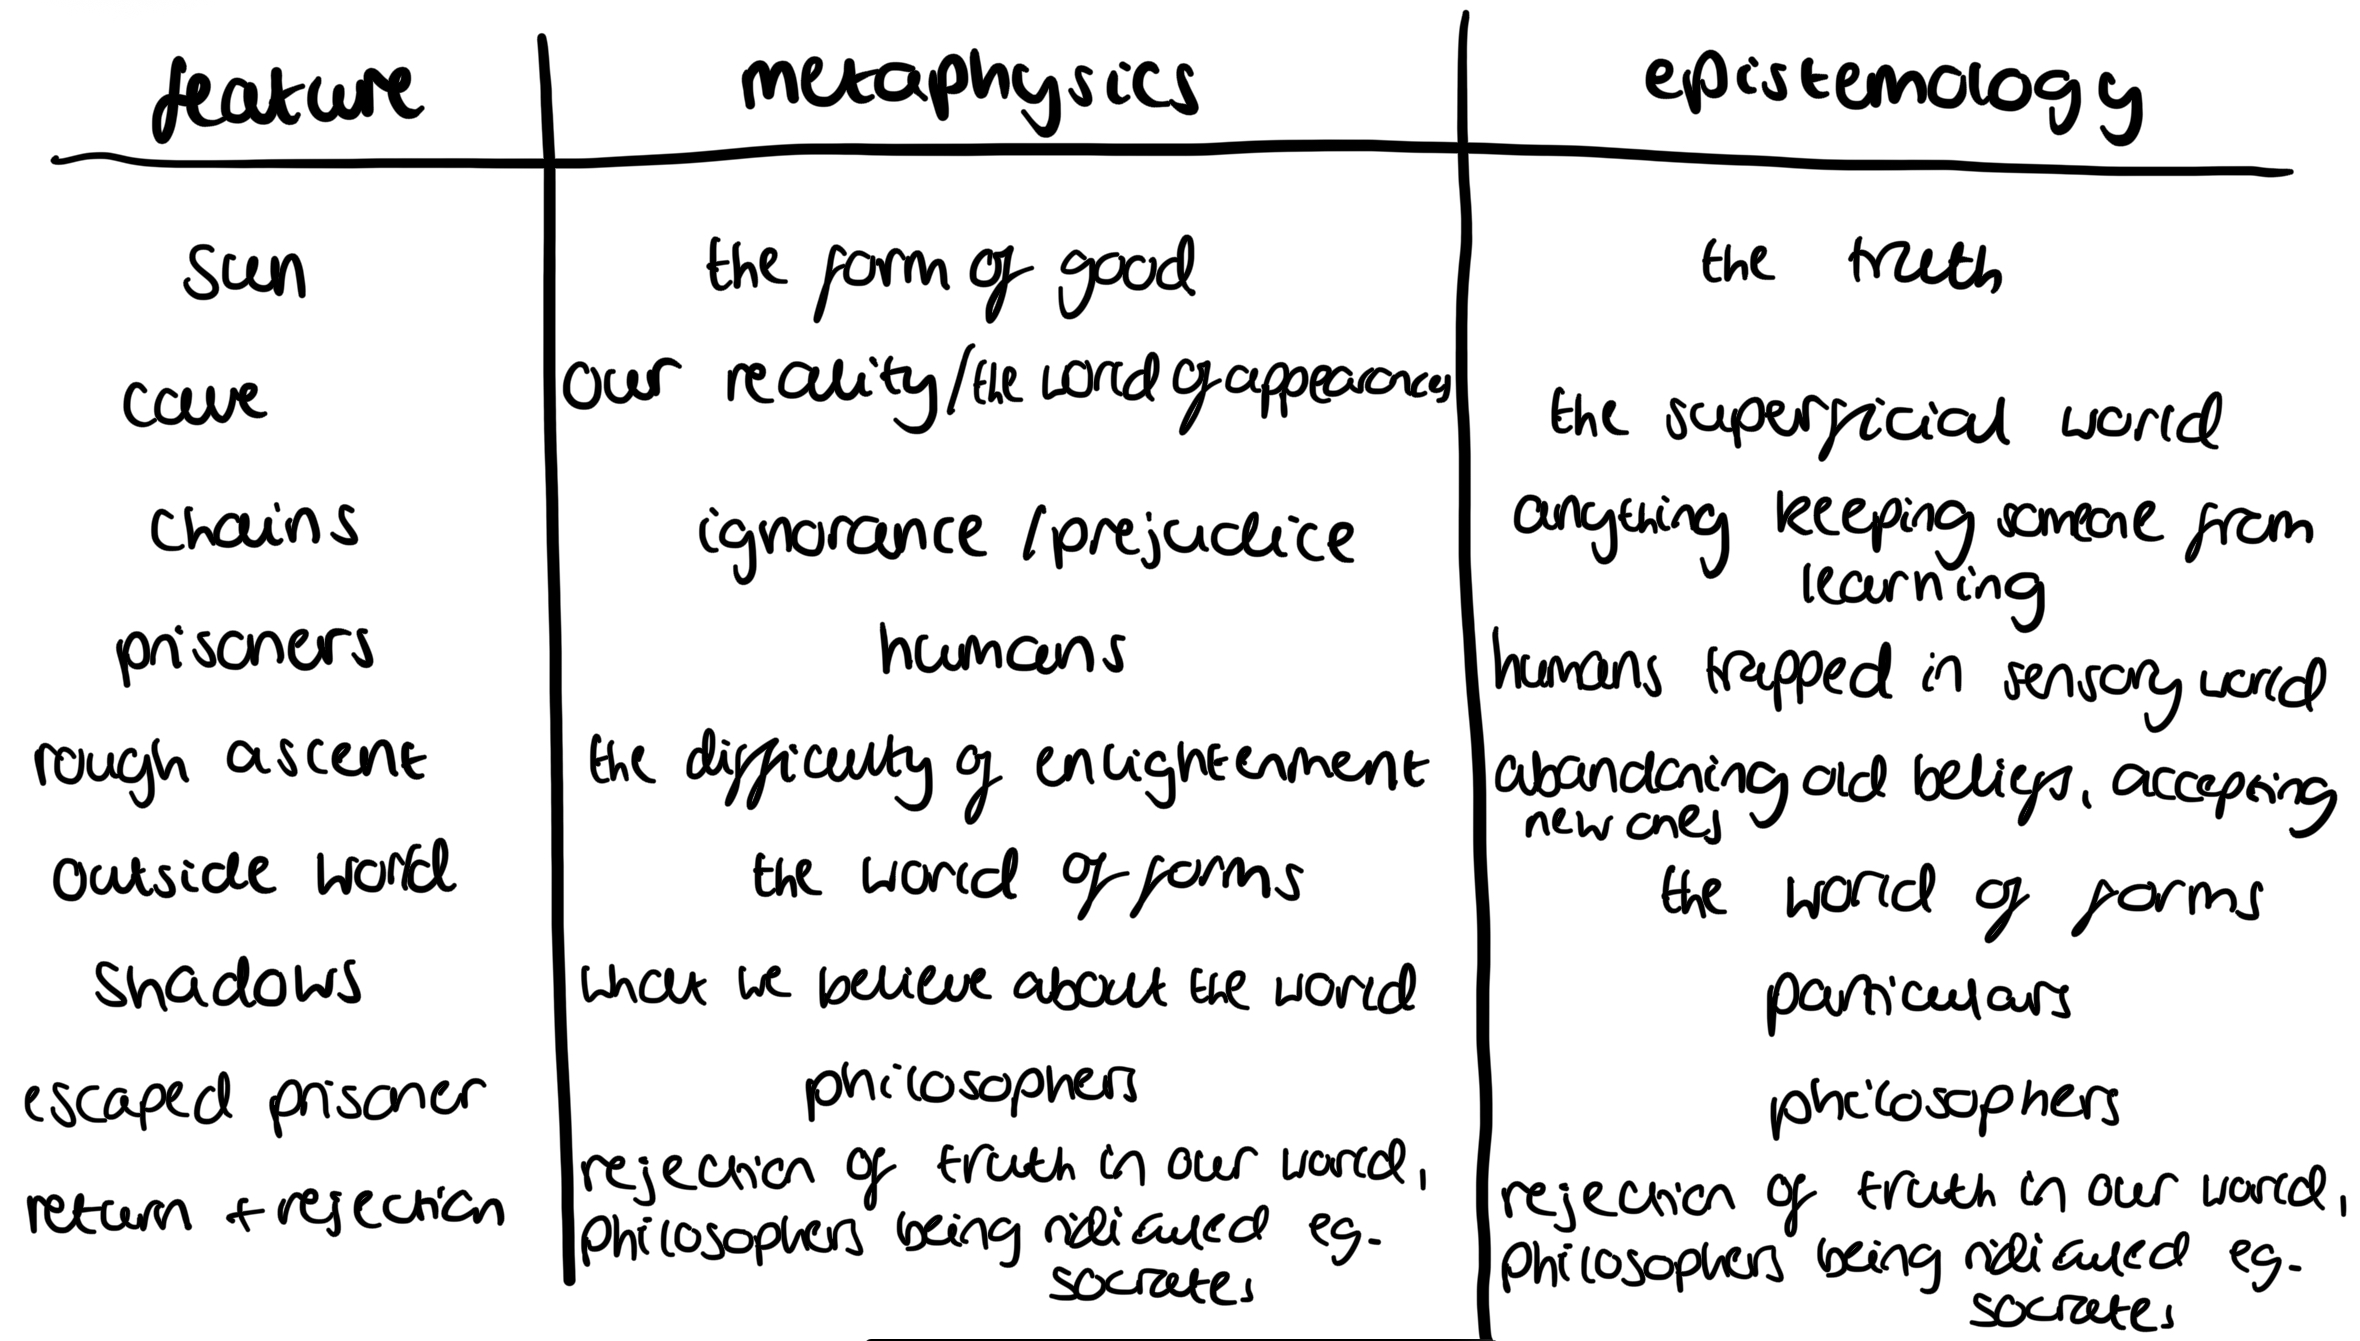 feature metaphysics epistemology
sun the form of good the truth
cave our reality/the world of appearances the superficial world
chains ignorance /prejudice anything keeping someone from
learning
prisoners humans humans trapped in sensory world
rough ascent the difficulty of enlightenment abandoning old beliefs, accepting
new ones
outside world the world of forms the world of forms
shadows what we believe about the world particulars
escaped prisoner philosophers philosophers
return + rejection rejection of truth in our world, rejection of truth in our world,
philosophers being ridiculed eg. philosophers being ridiculed eg.
socrates socrates